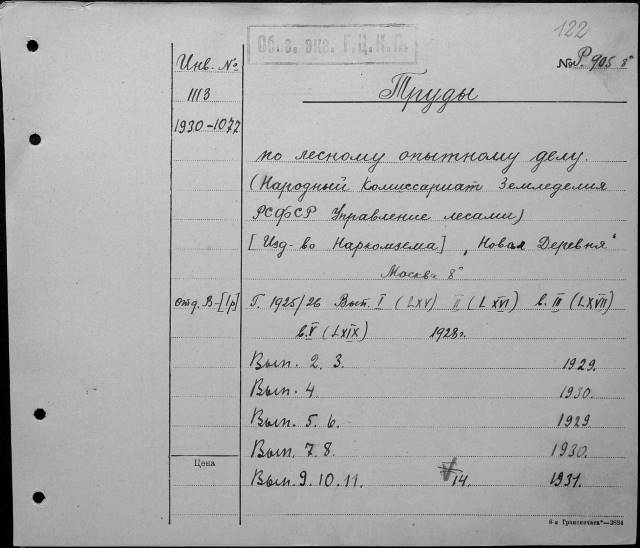 122
Обяз. экз. Г.Ц.К.П.
Инв. №
№ Р. 905 8°
1113
Труды
1930-1072
по лесному опытному делу.
(Народный Комиссариат Земледелия
РСФСР Управление лесами)
[Изд-во Наркомзема] „Новая Деревня"
Москва 8°
отд. В-[1р]
Г. 1925/26 Вып. I (LXV) II (LXVI) в. III (LXVII)
в. V (LXIX) 1928г.
Вып. 2. 3. 1929.
Вып. 4. 1930.
Вып. 5. 6. 1929
Вып. 7. 8. 1930.
Цена
Вып. 9. 10. 11. 14. 1931.
6-я Транспечать—3634